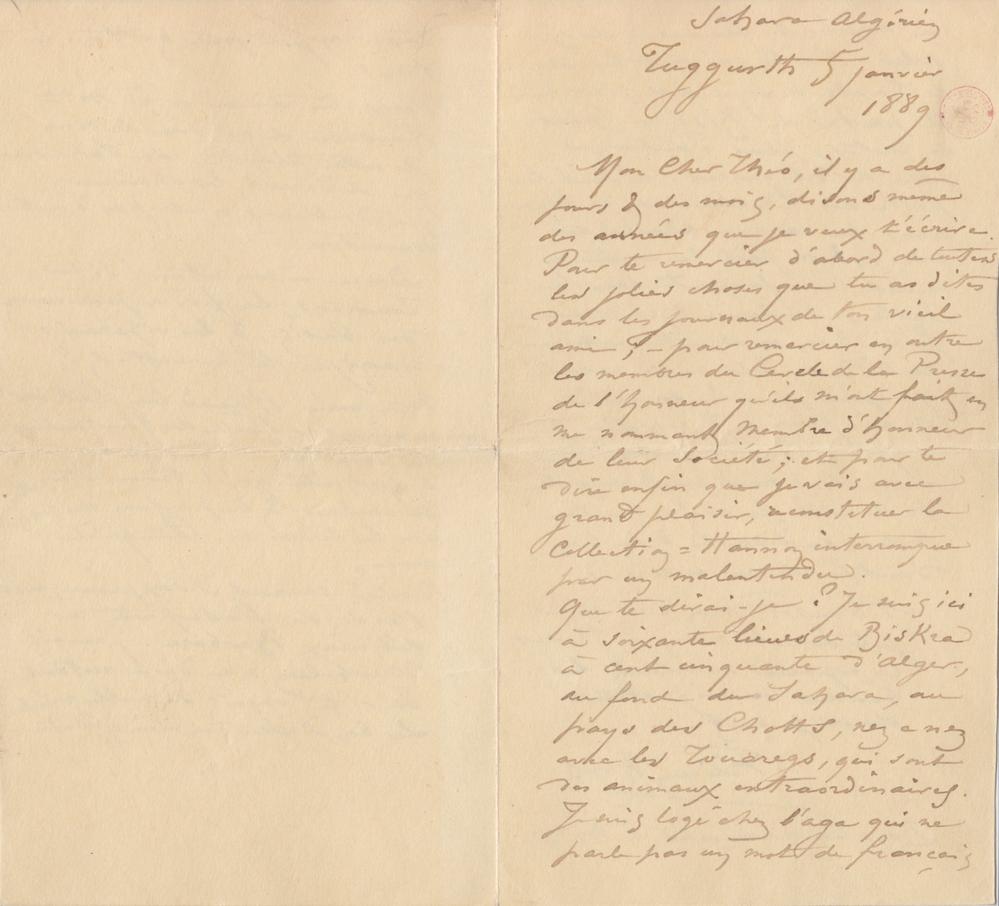 Sahara Algérien
Tuggurth 5 janvier
1889
Mon Cher Théo, il y a des
jours & des mois, disons même
des années que je veux t'écrire.
Pour te remercier d'abord de toutes
les jolies choses que tu as dites
dans les journaux de ton vieil
ami ; - pour remercier en outre
les membres du Cercle de la Presse
de l'honneur qu'ils m'ont fait en
me nommant membre d'honneur
de leur Société ; et pour te
dire enfin que je vais avec
grand plaisir, reconstituer la
Collection = Hannon interrompue
par un malentendu.
Que te dirai-je ? Je suis ici
à soixante lieues de Biskra
à cent cinquante d'Alger,
au fond du Sahara, au
pays des Chotts, nez a nez
avec les Touaregs, qui sont
des animaux extraordinaires.
Je suis logé chez l'aga qui ne
parle pas un mot de français